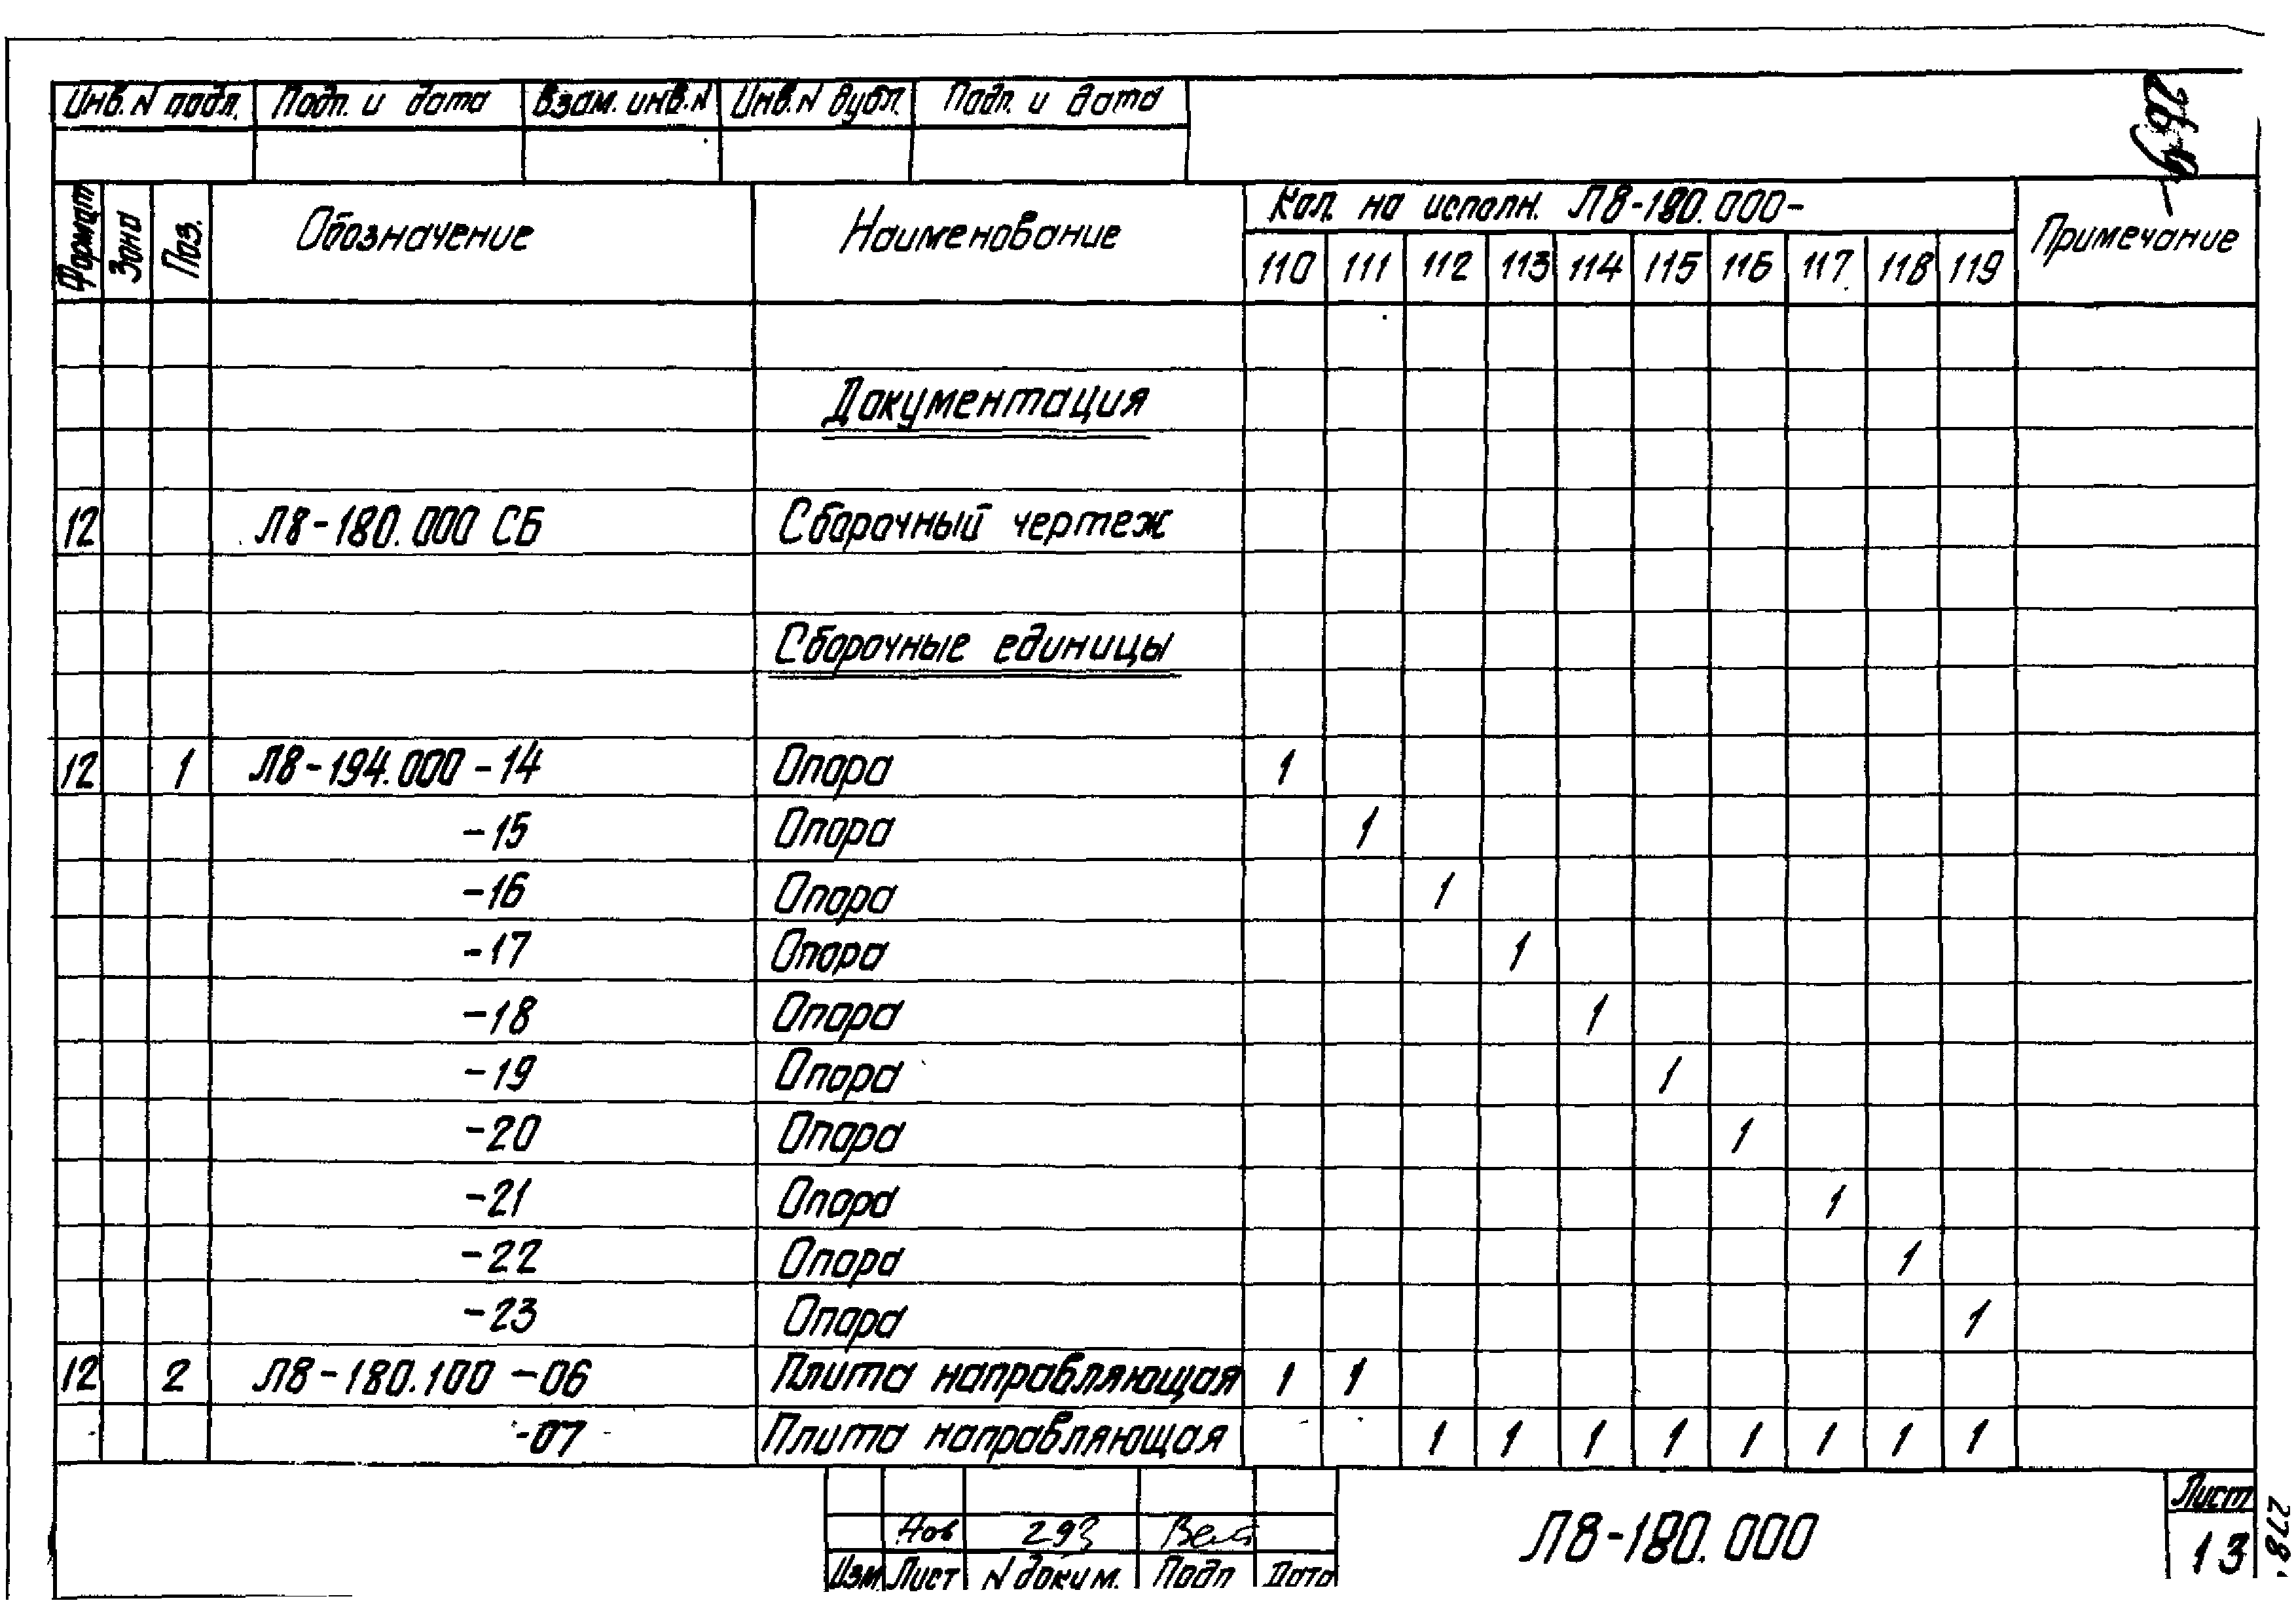 Инв. N подл. Подп. и дата Взам. инв. N Инв. N дубл. Подп. и дата
Формат Зона Поз. Обозначение Наименование Кол. на исполн. Л8-180.000- Примечание
110 111 112 113 114 115 116 117 118 119
Документация
12 Л8-180.000 СБ Сборочный чертеж
Сборочные единицы
12 1 Л8-194.000 -14 Опора 1
-15 Опора 1
-16 Опора 1
-17 Опора 1
-18 Опора 1
-19 Опора 1
-20 Опора 1
-21 Опора 1
-22 Опора 1
-23 Опора 1
12 2 Л8-180.100 -06 Плита направляющая 1 1
-07 Плита направляющая 1 1 1 1 1 1 1 1
Нов 293
Изм Лист N докум. Подп Дата
Л8-180.000
Лист
13
278